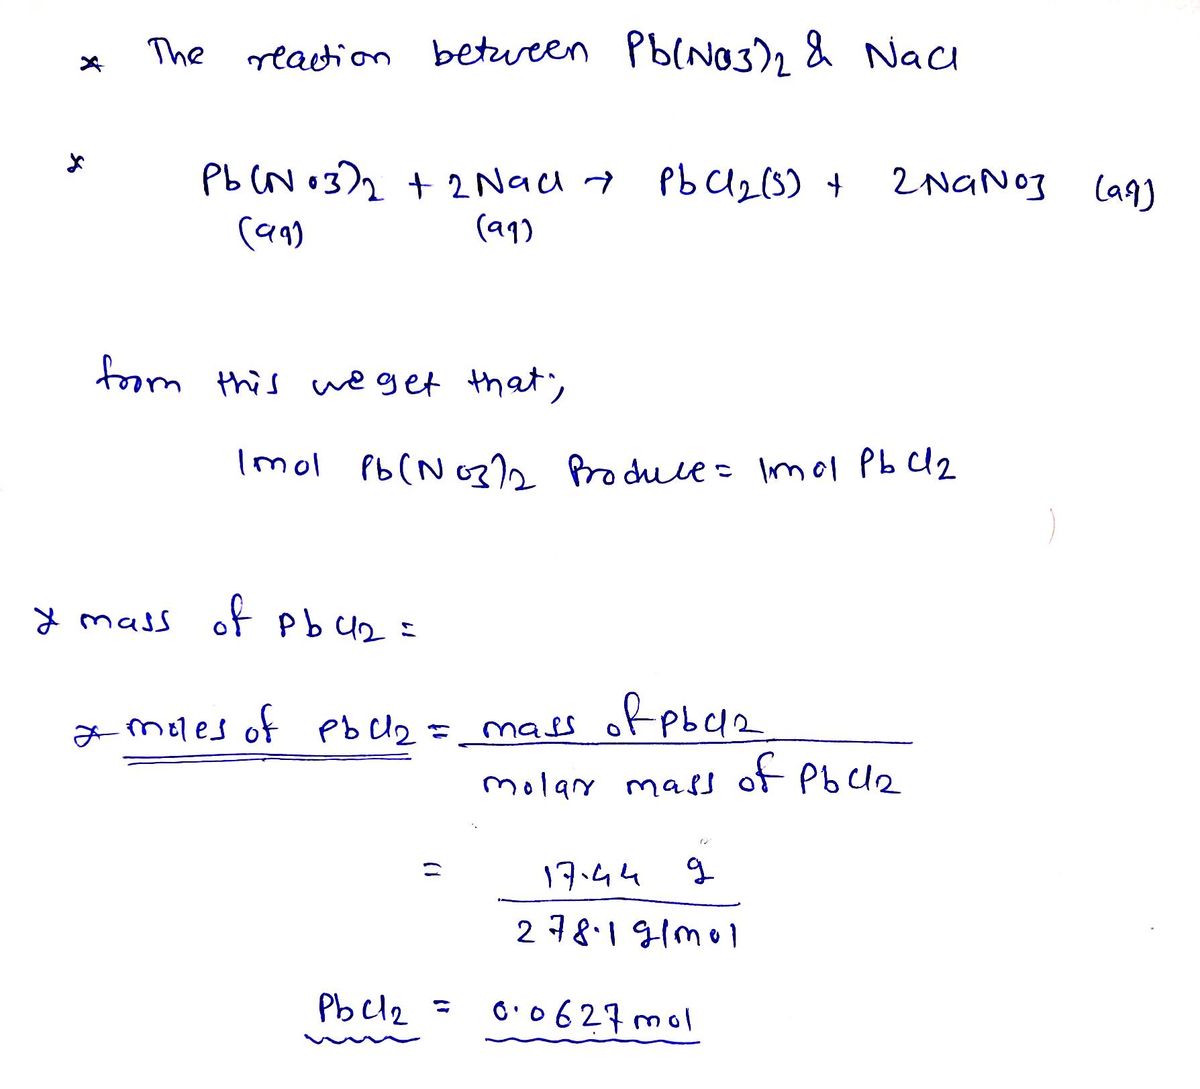 * The reaction between Pb(NO3)2 & NaCl
* Pb(NO3)2 + 2NaCl → PbCl2(s) + 2NaNO3 (aq)
(aq) (aq)
from this we get that;
1mol Pb(NO3)2 Produce = 1mol PbCl2
* mass of PbCl2 =
* moles of PbCl2 = mass of PbCl2
molar mass of PbCl2
= 17.44 g
278.1 g/mol
PbCl2 = 0.0627 mol